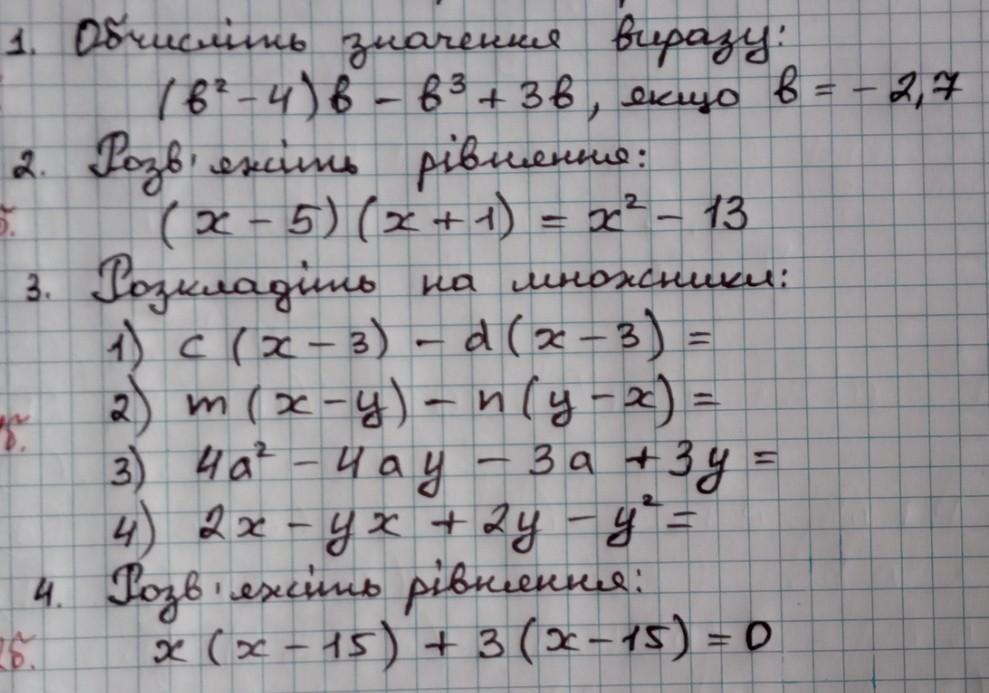 1. Обчисліть значення виразу:
(в² - 4)в - в³ + 3в, якщо в = - 2,7
2. Розв'яжіть рівняння:
(x - 5)(x + 1) = x² - 13
3. Розкладіть на множники:
1) c (x - 3) - d (x - 3) =
2) m (x - y) - n (y - x) =
3) 4a² - 4ay - 3a + 3y =
4) 2x - yx + 2y - y² =
4. Розв'яжіть рівняння:
x (x - 15) + 3 (x - 15) = 0